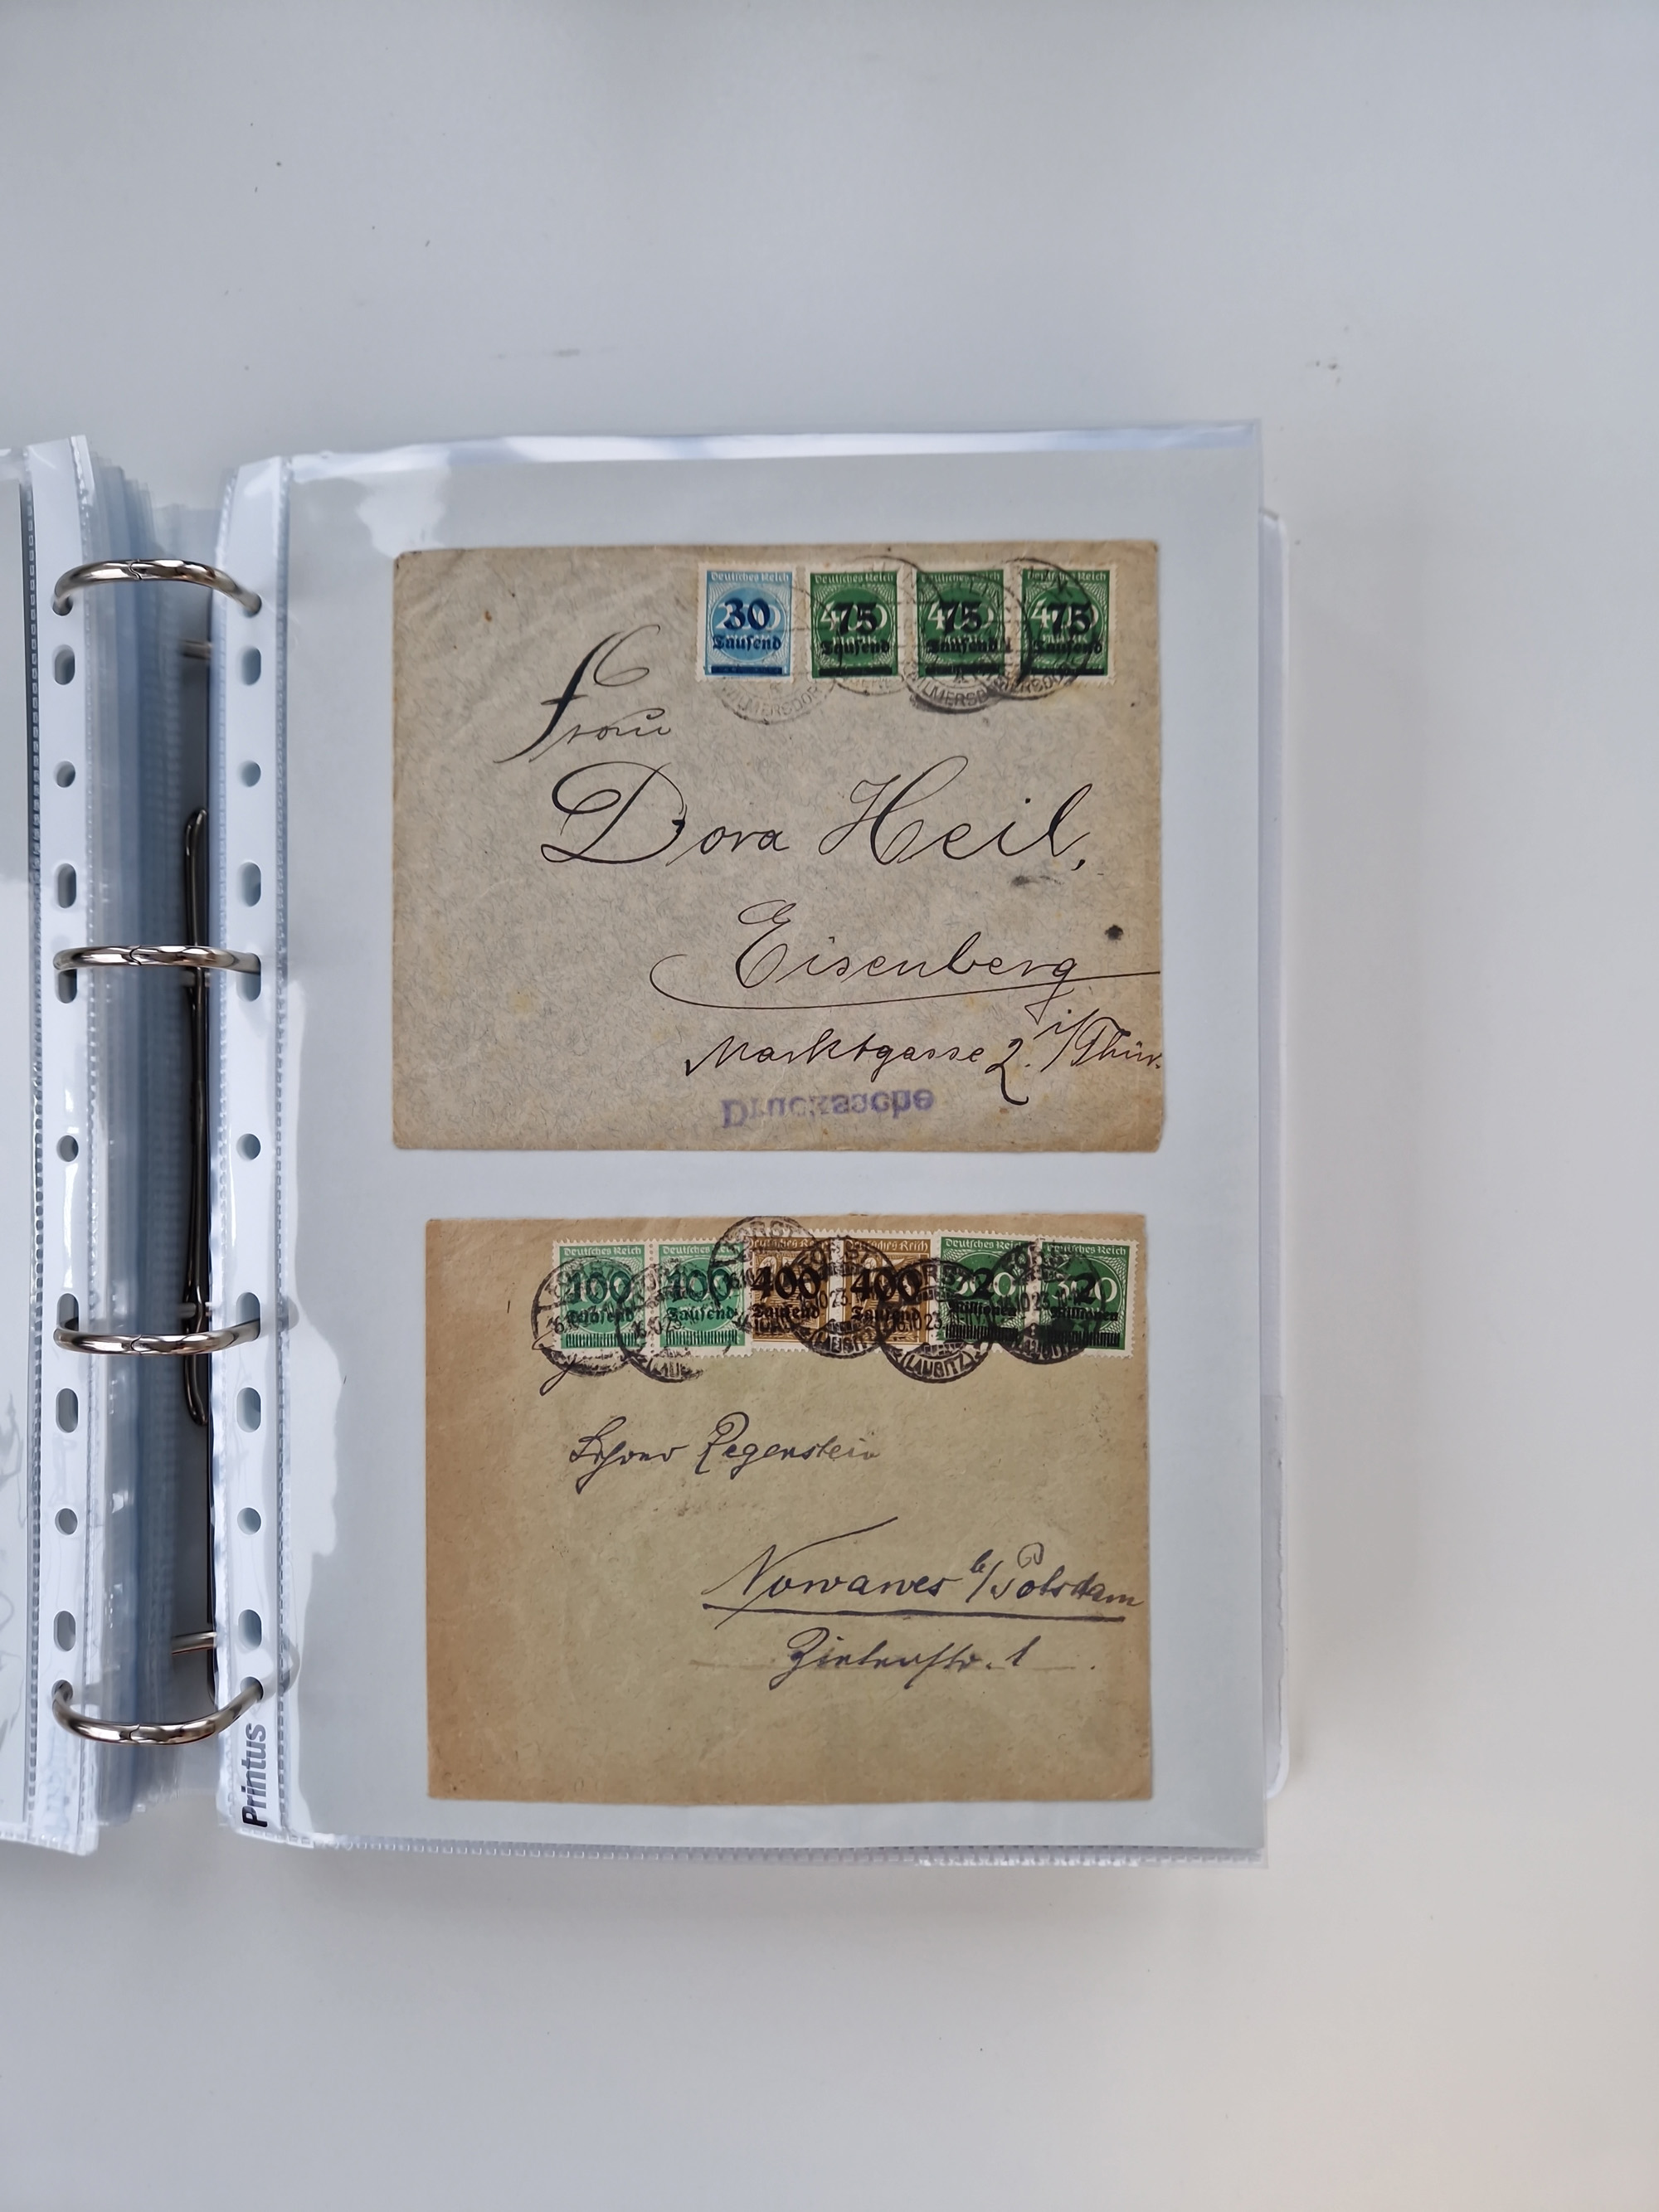 Deutsches Reich Deutsches Reich Deutsches Reich Deutsches Reich
30 75 75 75
Tausend Tausend Tausend Tausend
WILMERSDORF WILMERSDORF
Frau
Dora Heil,
Eisenberg
Marktgasse 2. i/Thür.
Drucksache
Deutsches Reich Deutsches Reich Deutsches Reich Deutsches Reich Deutsches Reich Deutsches Reich
100 100 400 400 2 2
Tausend Tausend Tausend Tausend Millionen Millionen
FORST
(LAUSITZ)
Regenstein
Nowawes b/Potsdam
Zietenstr. 1
Printus